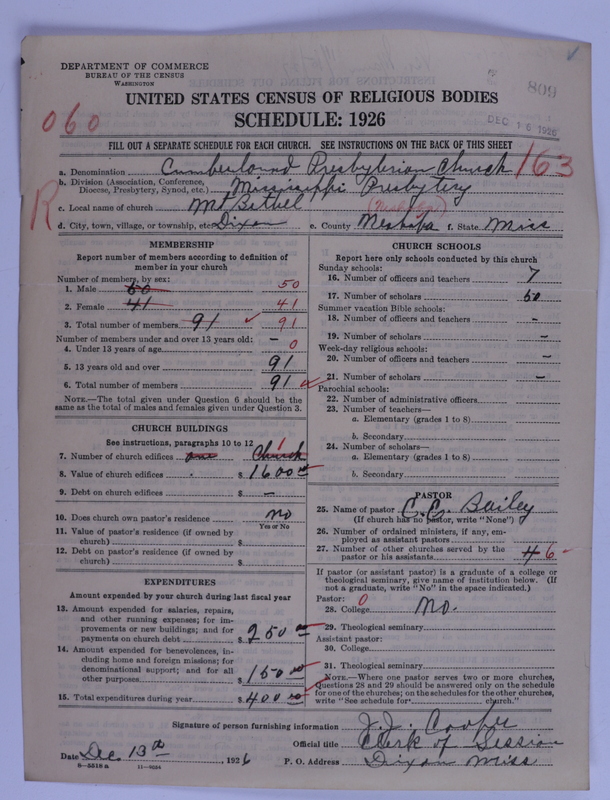 DEPARTMENT OF COMMERCE
BUREAU OF THE CENSUS
WASHINGTON
809
UNITED STATES CENSUS OF RELIGIOUS BODIES
060
SCHEDULE: 1926
DEC 16 1926
FILL OUT A SEPARATE SCHEDULE FOR EACH CHURCH. SEE INSTRUCTIONS ON THE BACK OF THIS SHEET
a. Denomination Cumberland Presbyterian Church 163
b. Division (Association, Conference, Diocese, Presbytery, Synod, etc.) Mississippi Presbytery
R
c. Local name of church Mt Bethel (Neshoba)
d. City, town, village, or township, etc. Dixon e. County Neshoba f. State Miss
MEMBERSHIP
Report number of members according to definition of
member in your church
Number of members, by sex:
1. Male 50 50
2. Female 41 41
3. Total number of members 91 91
Number of members under and over 13 years old:
4. Under 13 years of age – 0
5. 13 years old and over 91
6. Total number of members 91
NOTE.—The total given under Question 6 should be
same as the total of males and females given under Question 3.
CHURCH BUILDINGS
See instructions, paragraphs 10 to 12
7. Number of church edifices one Church 1
8. Value of church edifices $ 1600
9. Debt on church edifices $ –
10. Does church own pastor's residence no
Yes or No
11. Value of pastor's residence (if owned by
church) $
12. Debt on pastor's residence (if owned by
church) $
EXPENDITURES
Amount expended by your church during last fiscal year
13. Amount expended for salaries, repairs,
and other running expenses; for im-
provements or new buildings; and for
payments on church debt $ 250
14. Amount expended for benevolences, in-
cluding home and foreign missions; for
denominational support; and for all
other purposes $ 150
15. Total expenditures during year $ 400
CHURCH SCHOOLS
Report here only schools conducted by this church
Sunday schools:
16. Number of officers and teachers 7
17. Number of scholars 50
Summer vacation Bible schools:
18. Number of officers and teachers –
19. Number of scholars –
Week-day religious schools:
20. Number of officers and teachers –
21. Number of scholars –
Parochial schools:
22. Number of administrative officers
23. Number of teachers—
a. Elementary (grades 1 to 8)
b. Secondary
24. Number of scholars—
a. Elementary (grades 1 to 8)
b. Secondary
PASTOR
25. Name of pastor C.C. Bailey
(If church has no pastor, write "None")
26. Number of ordained ministers, if any, em-
ployed as assistant pastors
27. Number of other churches served by the
pastor or his assistants 4 6
If pastor (or assistant pastor) is a graduate of a college or
theological seminary, give name of institution below. (If
not a graduate, write "No" in the space indicated.)
Pastor: 0
28. College no.
29. Theological seminary
Assistant pastor:
30. College
31. Theological seminary
NOTE.—Where one pastor serves two or more churches,
Questions 28 and 29 should be answered only on the schedule
for one of the churches; on the schedules for the other churches,
write "See schedule for church."
Signature of person furnishing information J.J. Cooper
Official title Clerk of Session
Date Dec. 13th, 1926 P. O. Address Dixon Miss
8—5518 a 11—9024